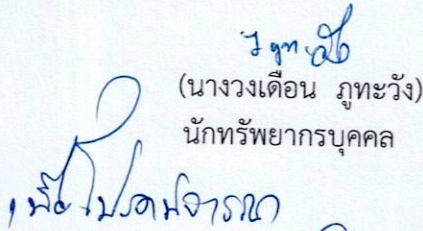 (นางวงเดือน ภูทะวัง)
นักทรัพยากรบุคคล
เพื่อโปรดพิจารณา